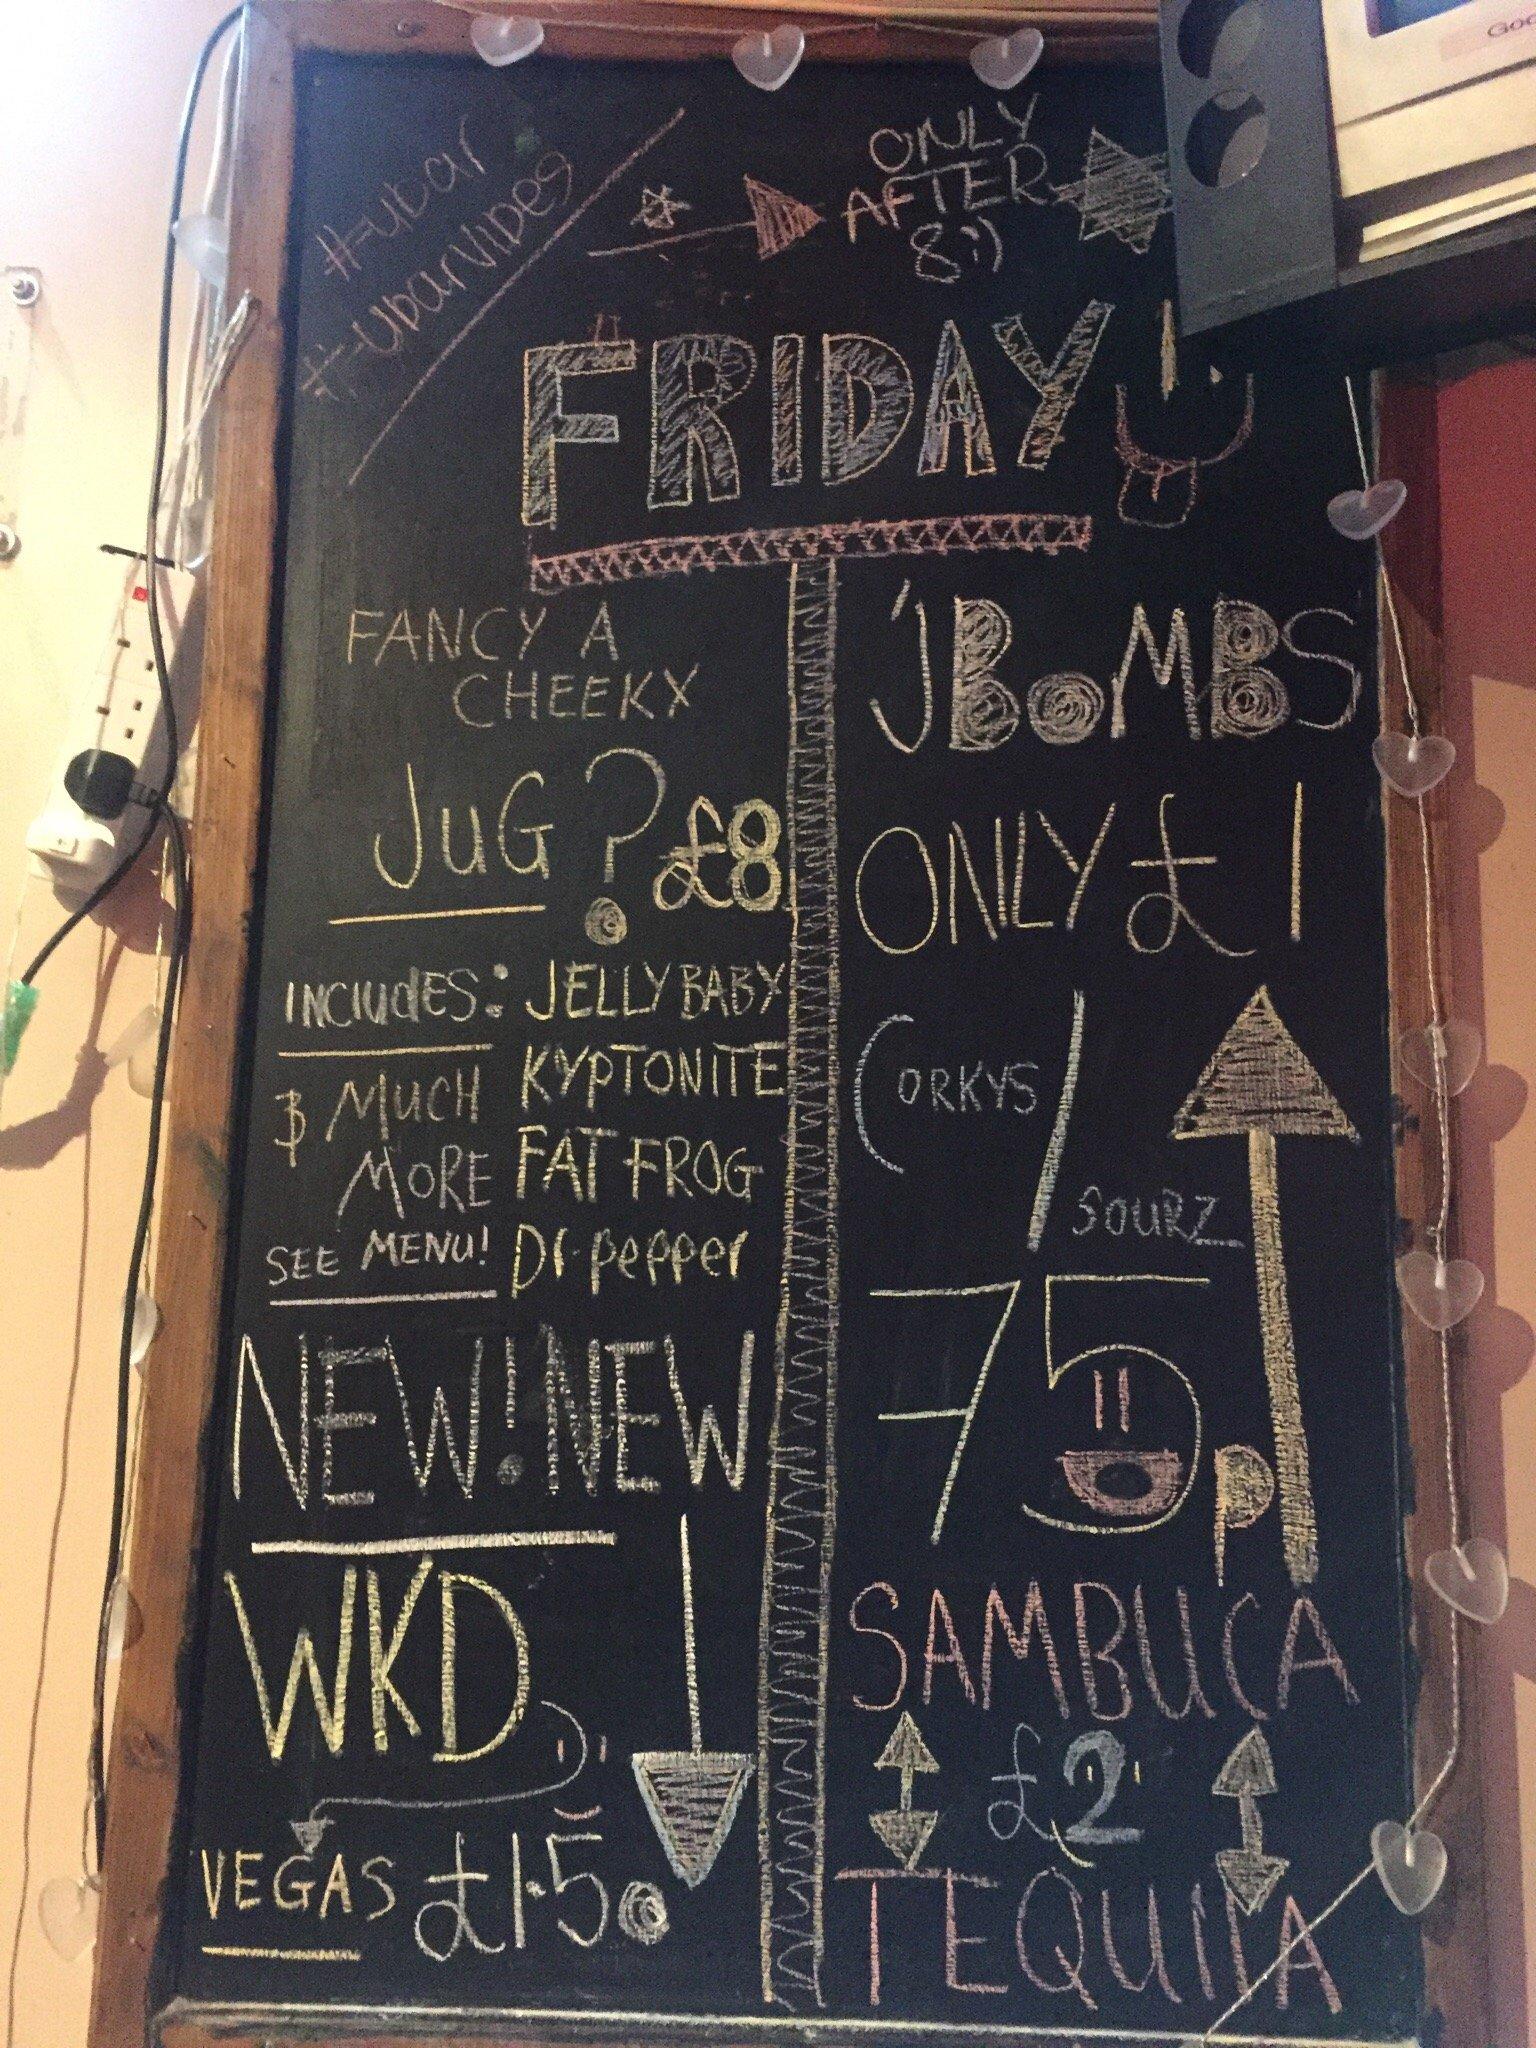 #ubar
#ubarvibes
ONLY
AFTER
8:)
FRIDAY
FANCY A
CHEEKY
JuG? £8
INCLUdES: JELLY BABY
KYPTONITE
& MUCH
MORE
FAT FROG
SEE MENU!
Dr. pepper
NEW! NEW
WKD
VEGAS £1.50
JBoMBS
ONLY £1
CORKYS / SOURZ
75p
SAMBUCA
£2
TEQUILA